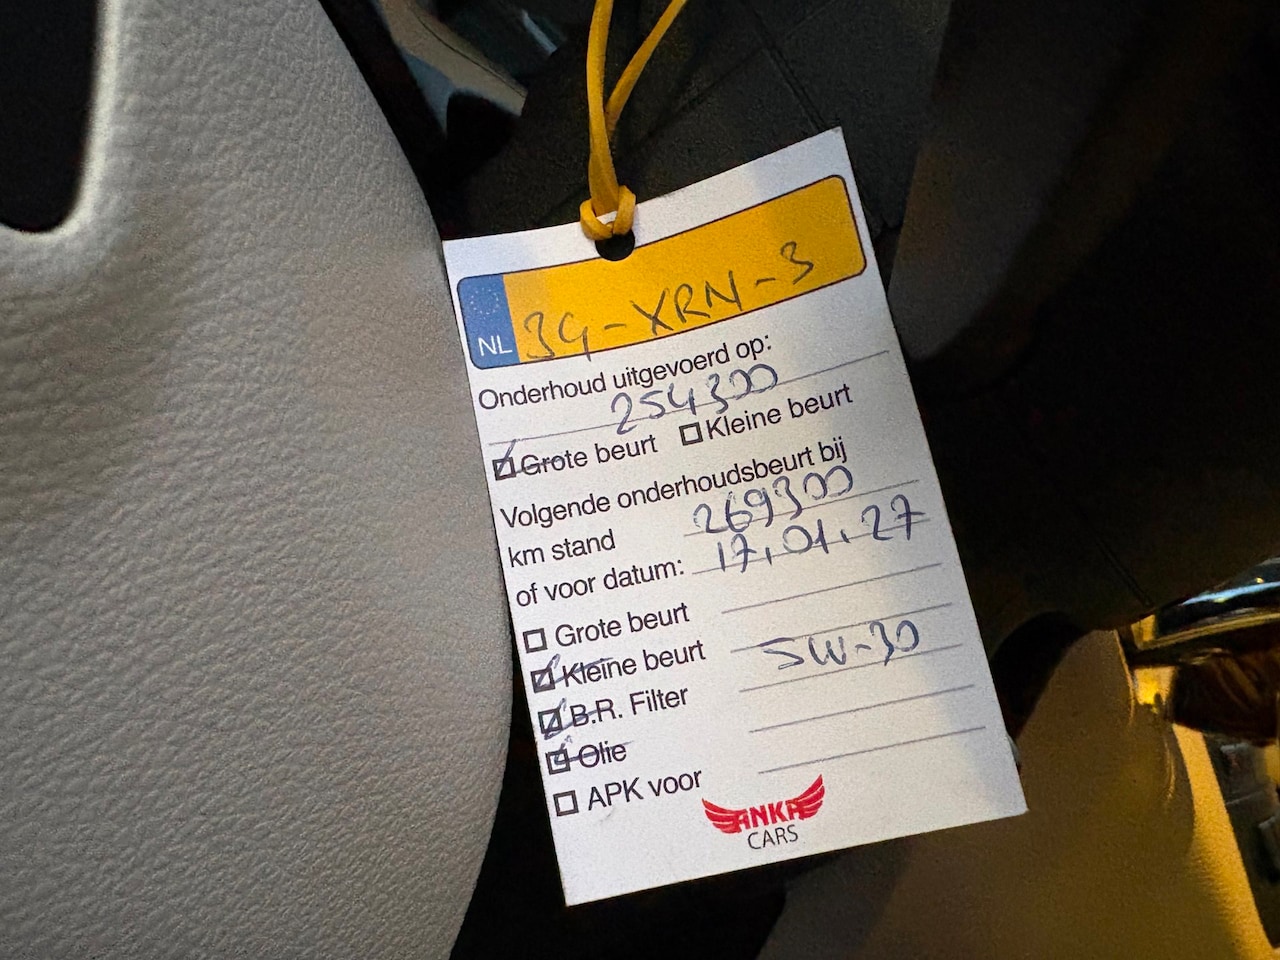 NL 39-XRN-3
Onderhoud uitgevoerd op:
254300
Grote beurt Kleine beurt
Volgende onderhoudsbeurt bij
km stand 269300
of voor datum: 17.01.27
Grote beurt
Kleine beurt
B.R. Filter 5W-30
Olie
APK voor
ANKA
CARS